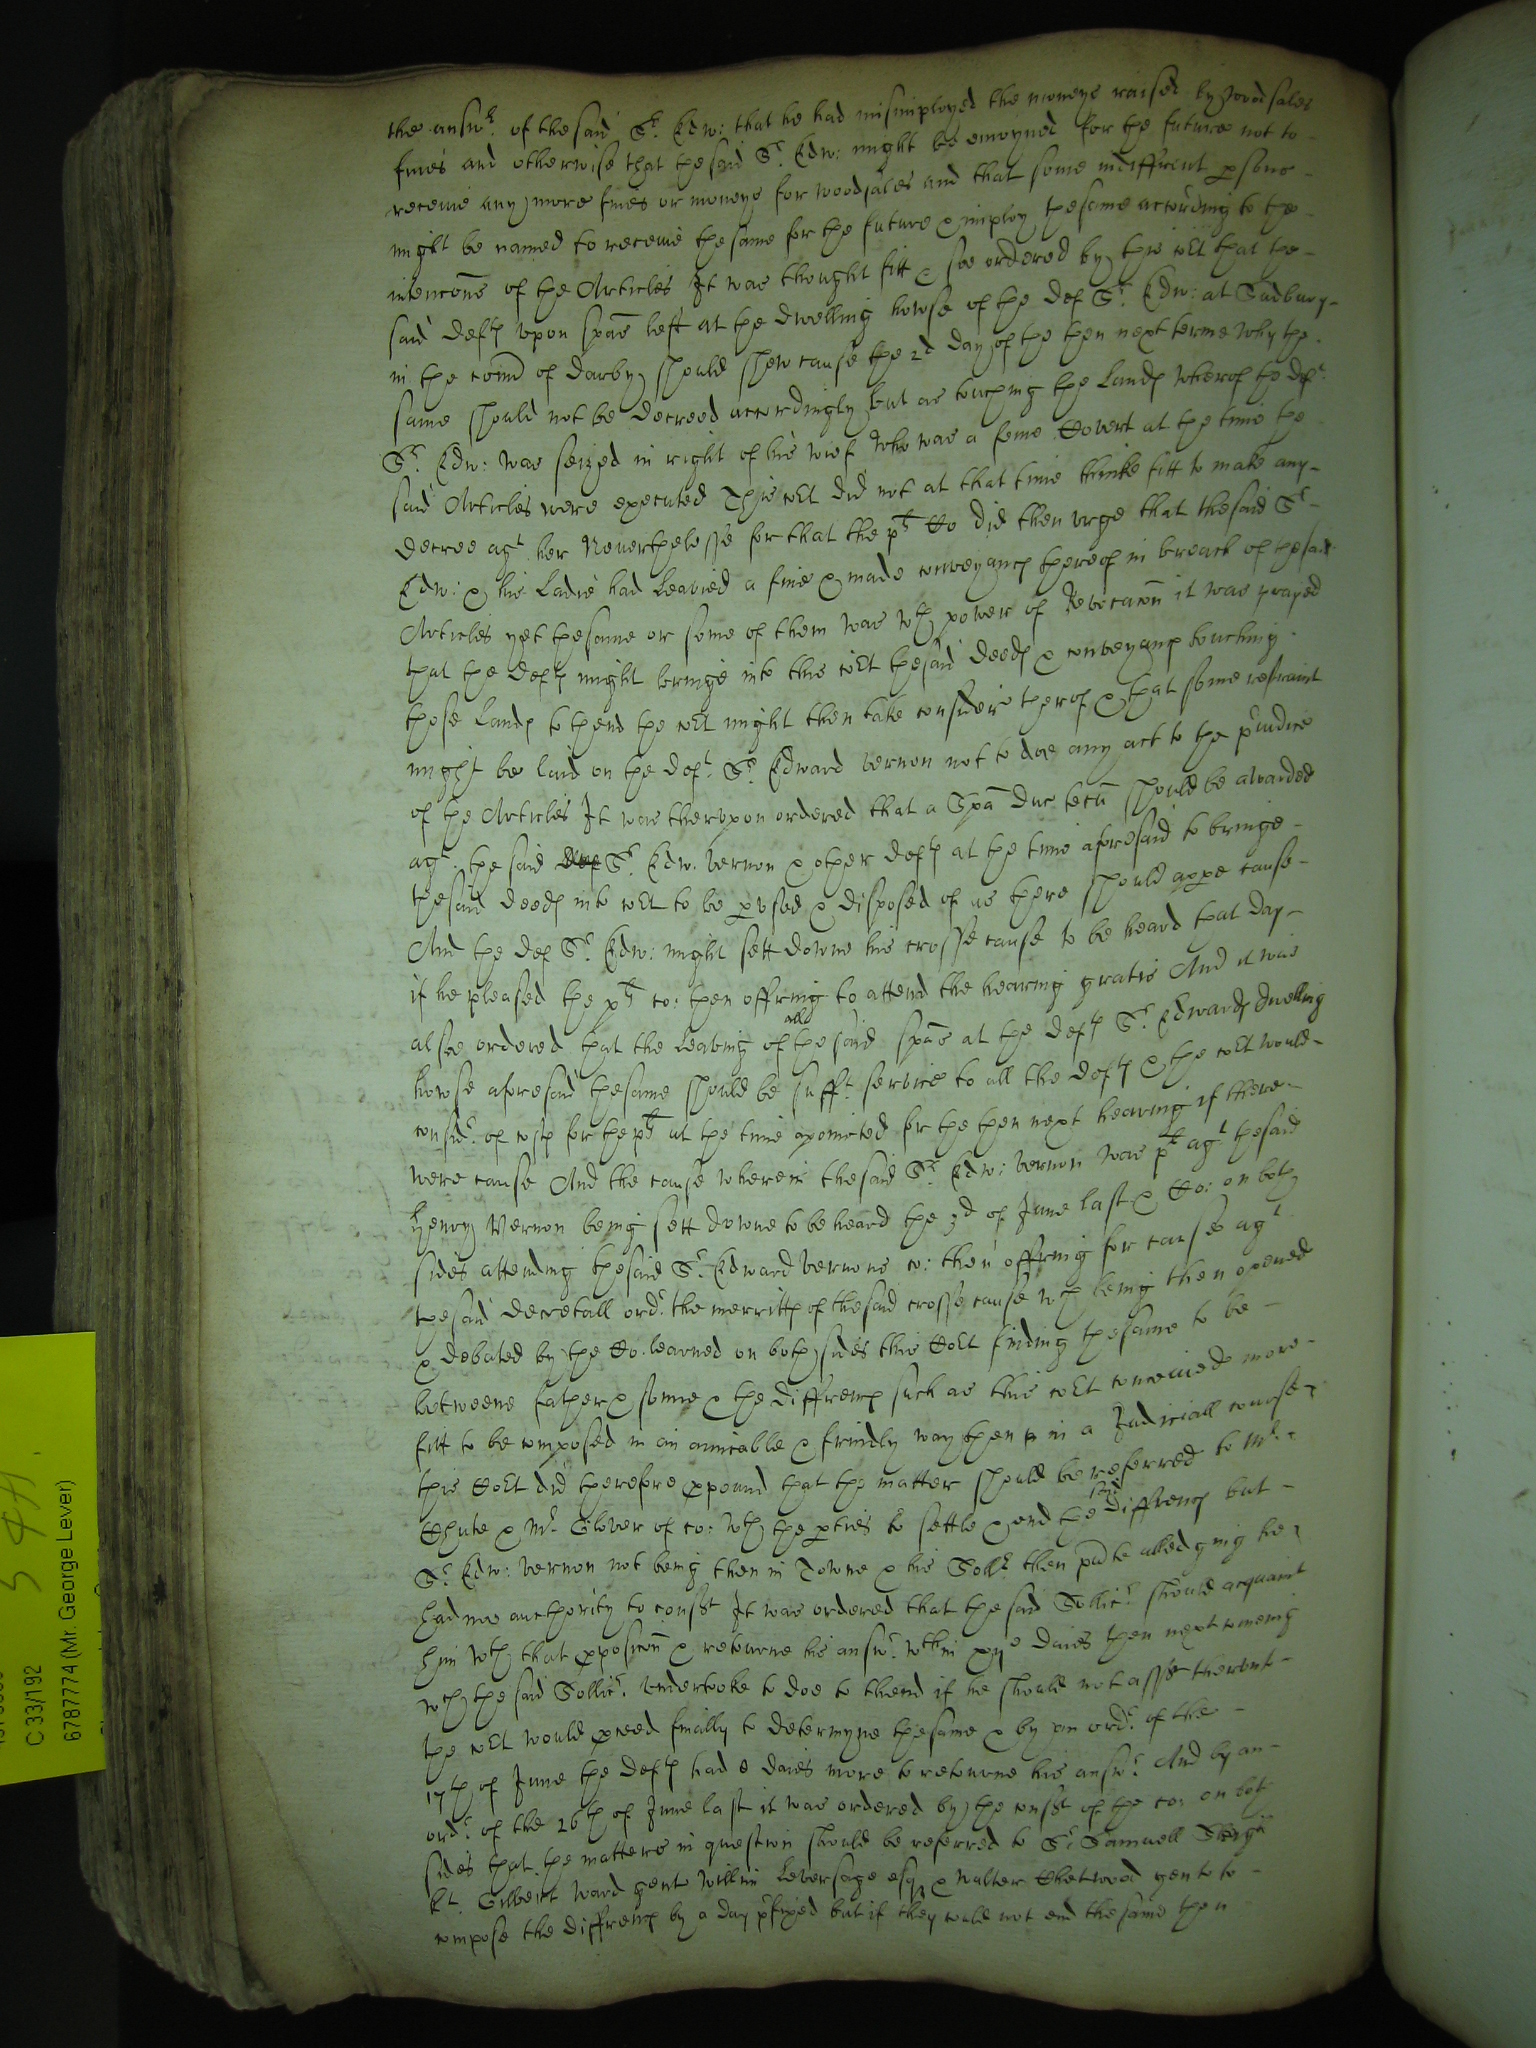 the answr. of the said Sr. Edw: that he had misimployed the moneys raised by wood sales
fines and otherwise that the said Sr. Edw: might be enioyned for the future not to
receive any more fines or moneys for woodsales and that some indiffrent psons
might be named to receive the same for the future & imploy the same according to the
intencons of the Articles It was thought fitt & soe ordered by this Cort that the
said Defts vpon spãs left at the dwelling howse of the def Sr. Edw: at Sudbury
in the County of Darby should shew cause the 2d day of the then next terme why the
same should not be decreed accordingly but as touching the Lands wherof the deft.
Sr. Edw: was seized in right of his wief who was a feme Covert at the time the
said Articles were executed This Cort did not at that time thinke fitt to make any
decree agt her Neverthelesse for that the plt Co did then vrge that the said Sr
Edw: & his Ladie had Leavied a fine & made conveyancs thereof in breach of the said
Articles yet the same or some of them was wth power of Revocacon it was prayed
that the defts might bringe into this Cort the said deeds & conveyancs touching
those Lands to thend the Cort might then take consideracon therof & that some restraint
might be laid on the deft. Sr. Edward Vernon not to doe any act to the preiudice
of the Articles It was therupon ordered that a Spã Duc tecũ should be awarded
agt. the said Def Sr. Edw. Vernon & other defts at the time aforesaid to bringe
the said deeds into Cort to be pvsed & disposed of as there should appe cause
And the def Sr. Edw: might sett downe his crosse cause to be heard that day
if he pleased the plts co: then offring to attend the hearing gratis And it was
alsoe ordered that the Leaving of all the said spãs at the defts Sr. Edwards dwelling
howse aforesaid the same should be sufft. service to all the defts & the Cort would
consider. of costs for the plt at the time appointed for the then next hearing if there
were cause And the cause wherein the said Sr. Edw: Vernon was plt agt the said
Henry Vernon being sett downe to be heard the 3d of June last & Co: on both
sides attending the said Sr. Edward Vernons co: then offring for cause agt
the said decretall ordr. the merritts of the said crosse cause wch being then opened
& debated by the Co. learned on both sides this Cort finding the same to be
betweene father & sonne & the diffrencs such as this Cort conceived more
fitt to be composed in an amicable & frindly way then in a Judiciall course
this Cort did therefore ppound that the matter should be referred to Mr.
Chute & Mr. Glover of co: wth the pties to settle & end the said diffrencs but
Sr. Edw: Vernon not being then in Towne & his Sollr. then psente alledging he
had noe authority to consent It was ordered that the said Sollicr. should acquaint
him wth that pposicon & retourne his answr. wthin xije daies then next comeing
wch the said Sollicr. vndertooke to doe to thend if he should not assent therunto
the Cort would pceed finally to determyne the same & by an ordr. of the
17th of June the defts had 8 daies more to retourne his answr. And by an
ordr. of the 26th of June last it was ordered by the consent of the co: on both
sides that the matters in question should be referred to Sr. Samuell Sleigh
kt. Gilbert Ward gent Willm Leversage esqr & Walter Chetwood gent to
compose the diffrencs by a day prfixed but if they could not end the same then